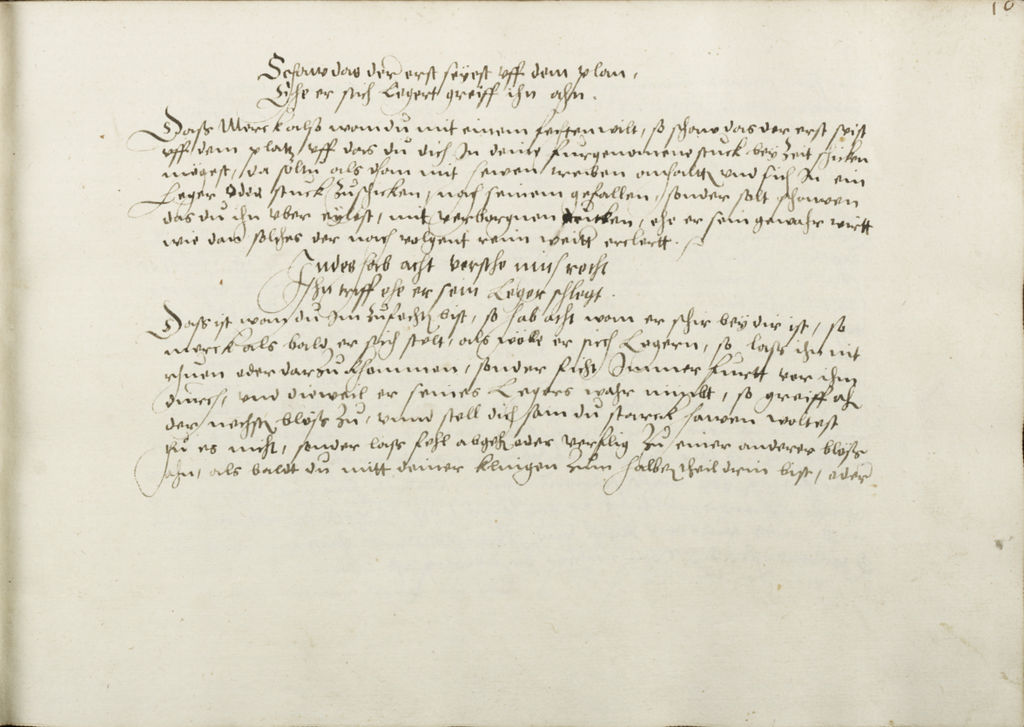 10
Schauw das der erst seyest uff dem plan,
Ehe er sich Legert greiff ihn ahn.
Dass Merck also wan du mit einem fechten wilt, so schauw das der erst seist
uff dem platz uff das du dich In deine furgenomene stuck bey Zeit schicken
mögest, da soltu als dan mit hewen treiben und sich In ein
Leger oder stuck Zuschicken, nach seinem gefallen, sonder solt schauwen
das du ihn uber eylest, mit verborgnen stucken, ehe er sein gewahr wirtt
wie dan solches der nach volgent reim weitt erclertt.
Indes hab acht versehe mich recht
Ihn triff ehe er sein Leger schlegt.
Das ist wan du Im Zufechtt bist, so hab acht wan er schir bey dir ist, so
merck als bald er sich stelt, als wolte er sich Legern, so lass ihn nit
rhuen oder darzu khommen, sonder ficht Immer furtt vor ihm
durch, und dieweil er seines Legers wahr nimbt, so greiff ahn
der nechst blöss Zu, unnd stell dich sam du starck hawen woltest
thu es nicht, sonder lass fehl abgehn oder verflig Zu einer anderer blöss
ahn, als baldt du mitt deiner klingen Zum halben theil drin bist, oder